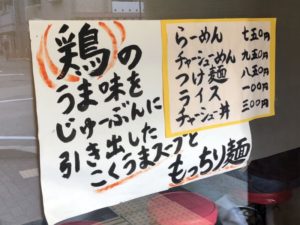 (鶏)の
うま味を
じゅーぶんに
引き出した
こくうまスープと
もっちり麺
らーめん 七五〇円
チャーシューめん 九五〇円
つけ麺 八五〇円
ライス 一〇〇円
チャーシュー丼 三〇〇円